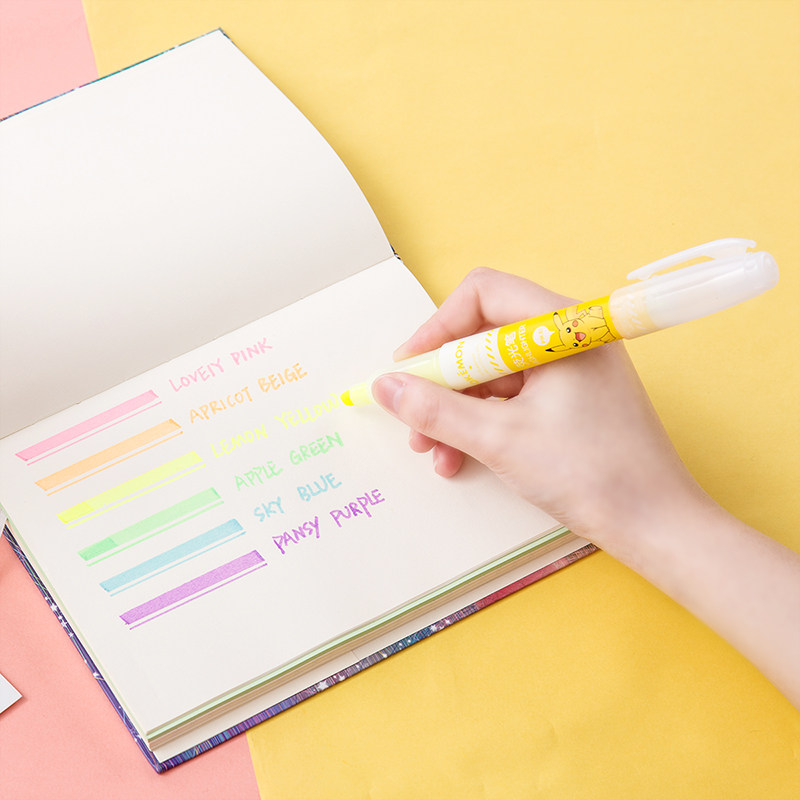 LOVELY PINK
APRICOT BEIGE
LEMON YELLOW
APPLE GREEN
SKY BLUE
PANSY PURPLE